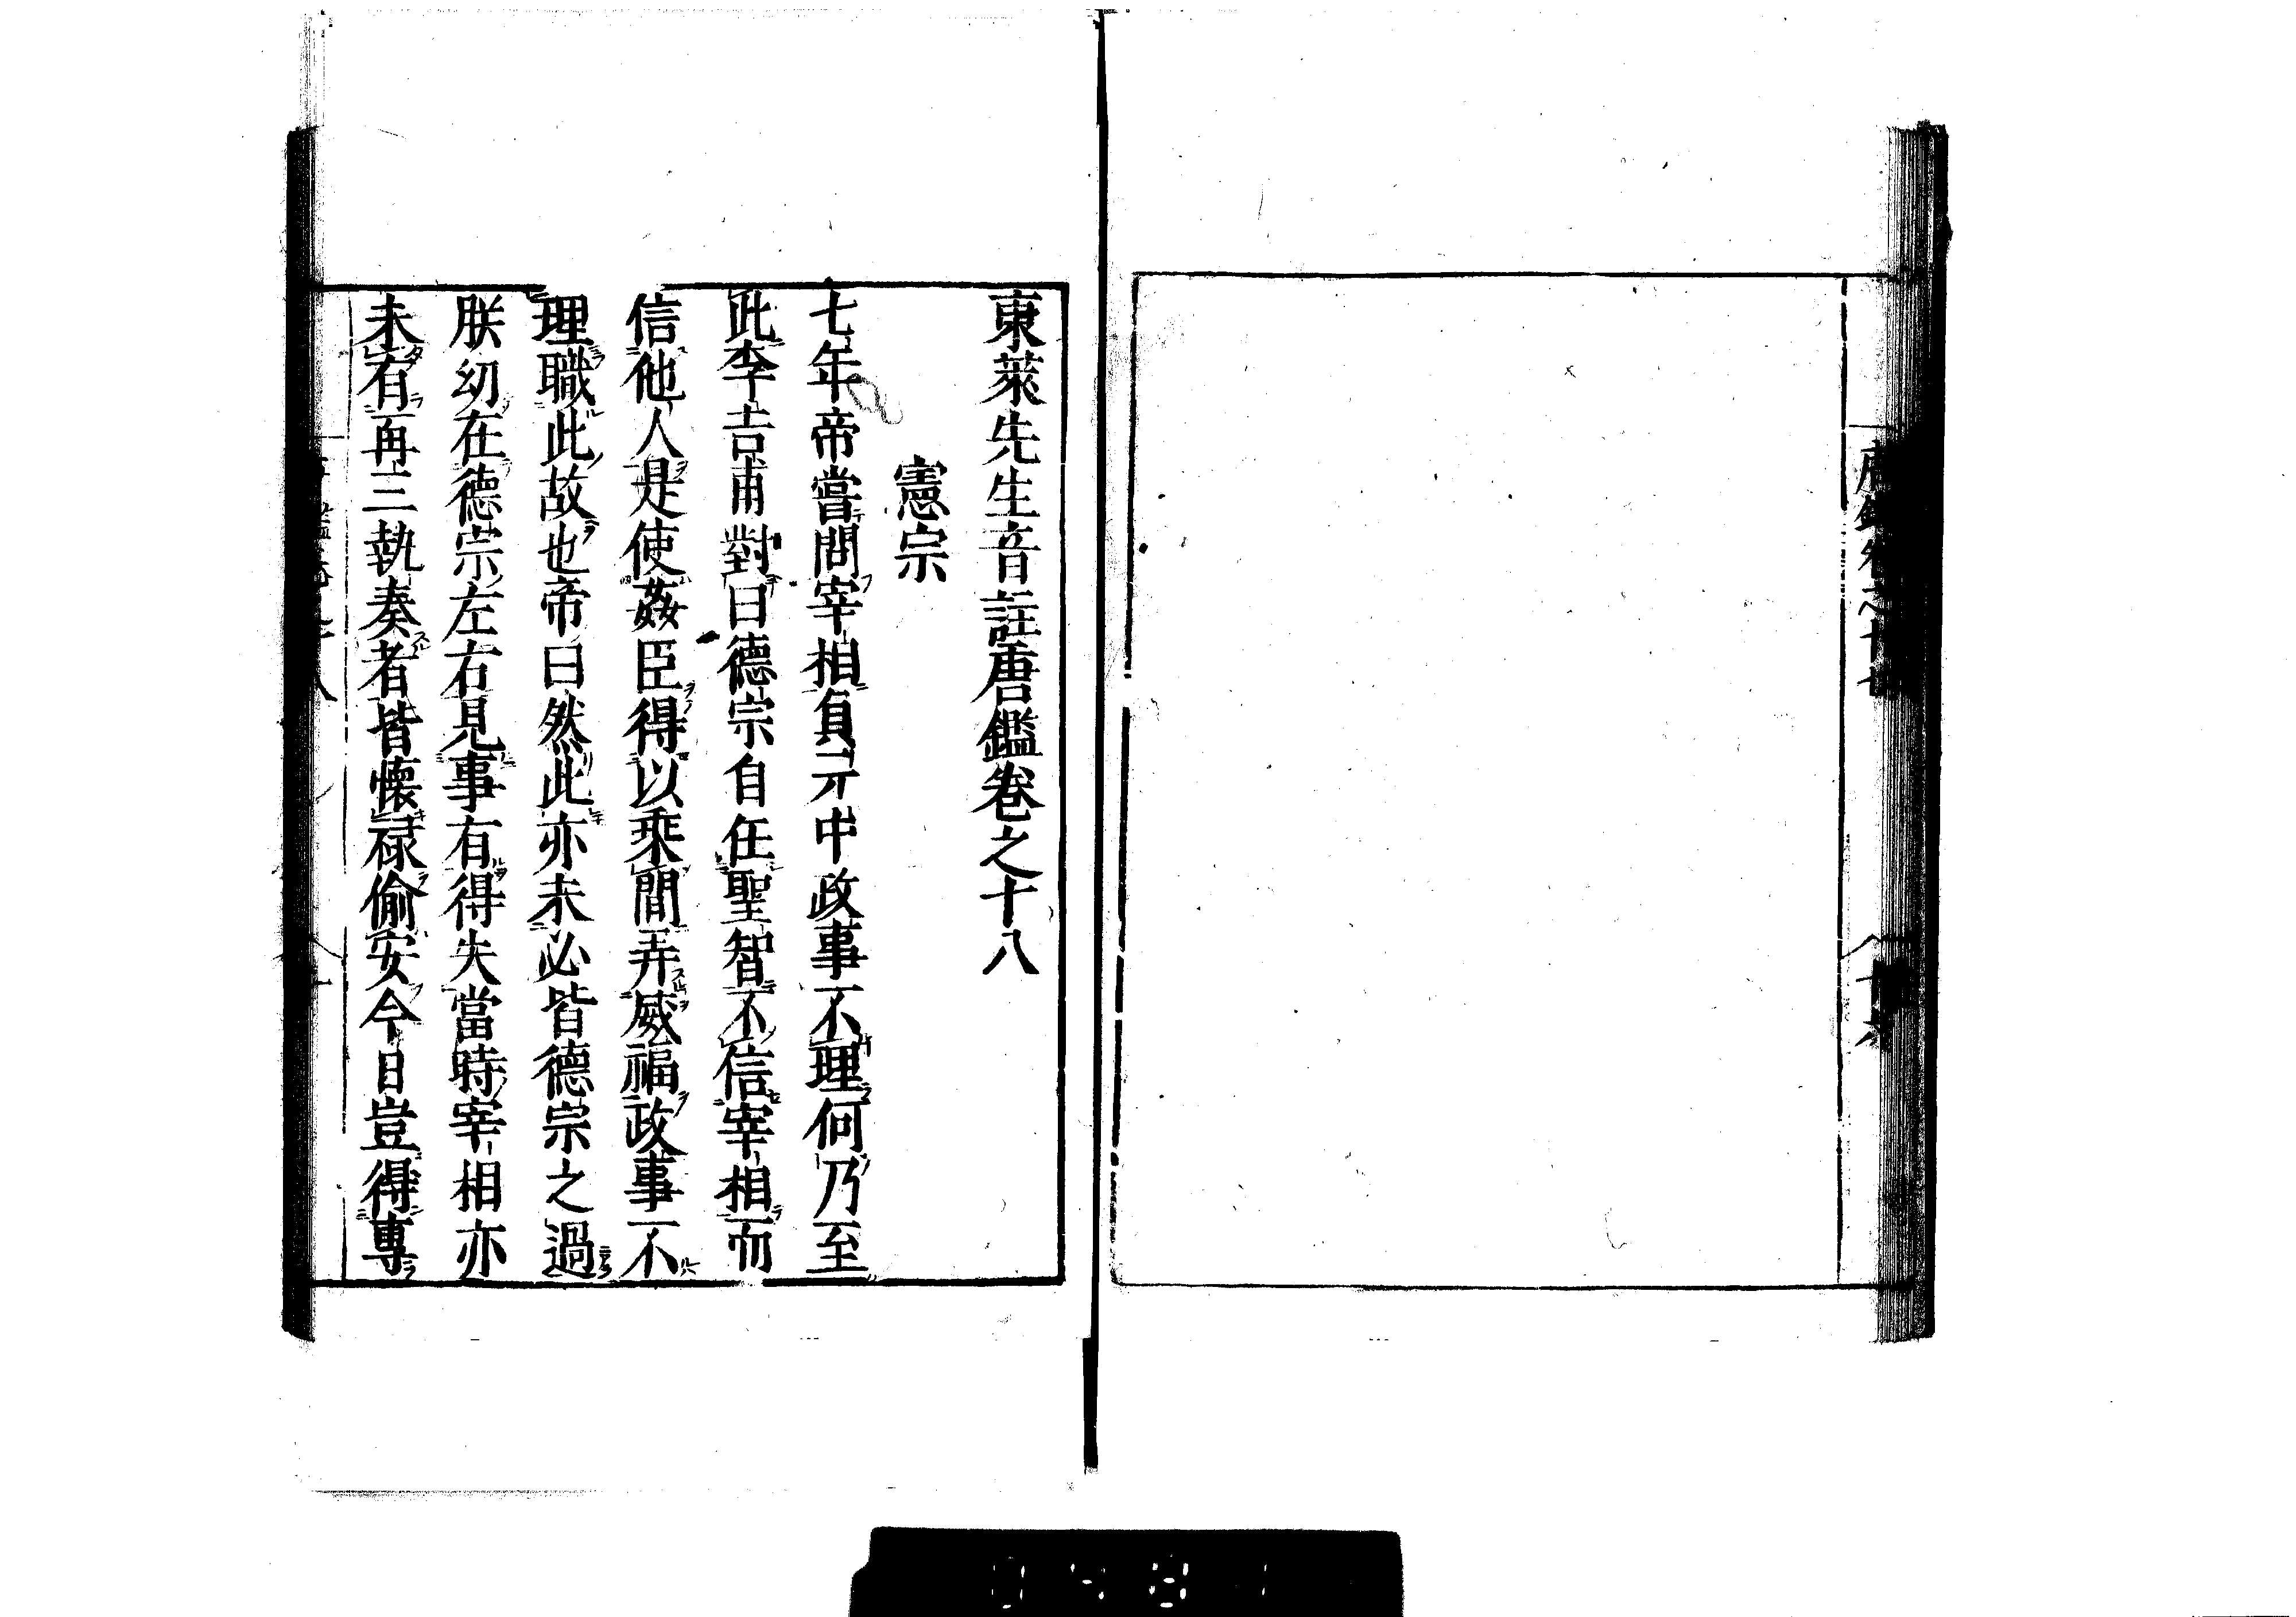 東萊先生音註唐鑑卷之十八
憲宗
七年帝嘗問宰相貞元中政事不理何乃至
此李吉甫對曰德宗自任聖智不信宰相而
信他人是使姦臣得以乘間弄威福政事不
理職此故也帝曰然此亦未必皆德宗之過
朕幼在德宗左右見事有得失當時宰相亦
未有再三執奏者皆懷祿偷安今日豈得專